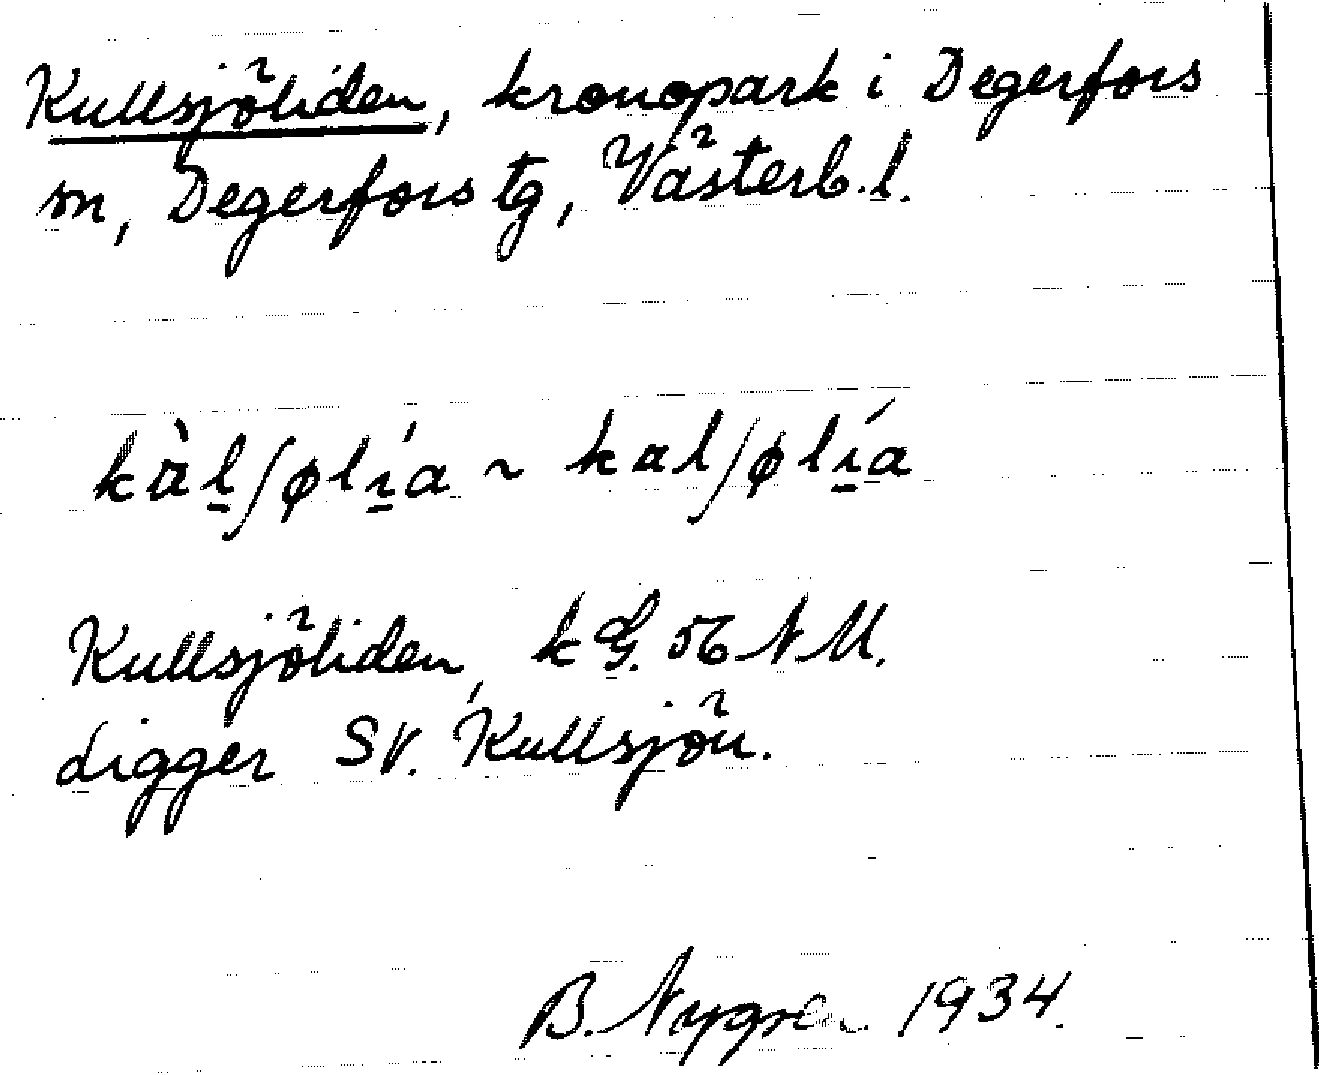 Kullsjöliden, kronopark i Degerfors
sn, Degerfors tg, Västerb. l.
Kullsjöliden, k G. 56 N M.
ligger SV. Kullsjön.
B. Nygren 1934.